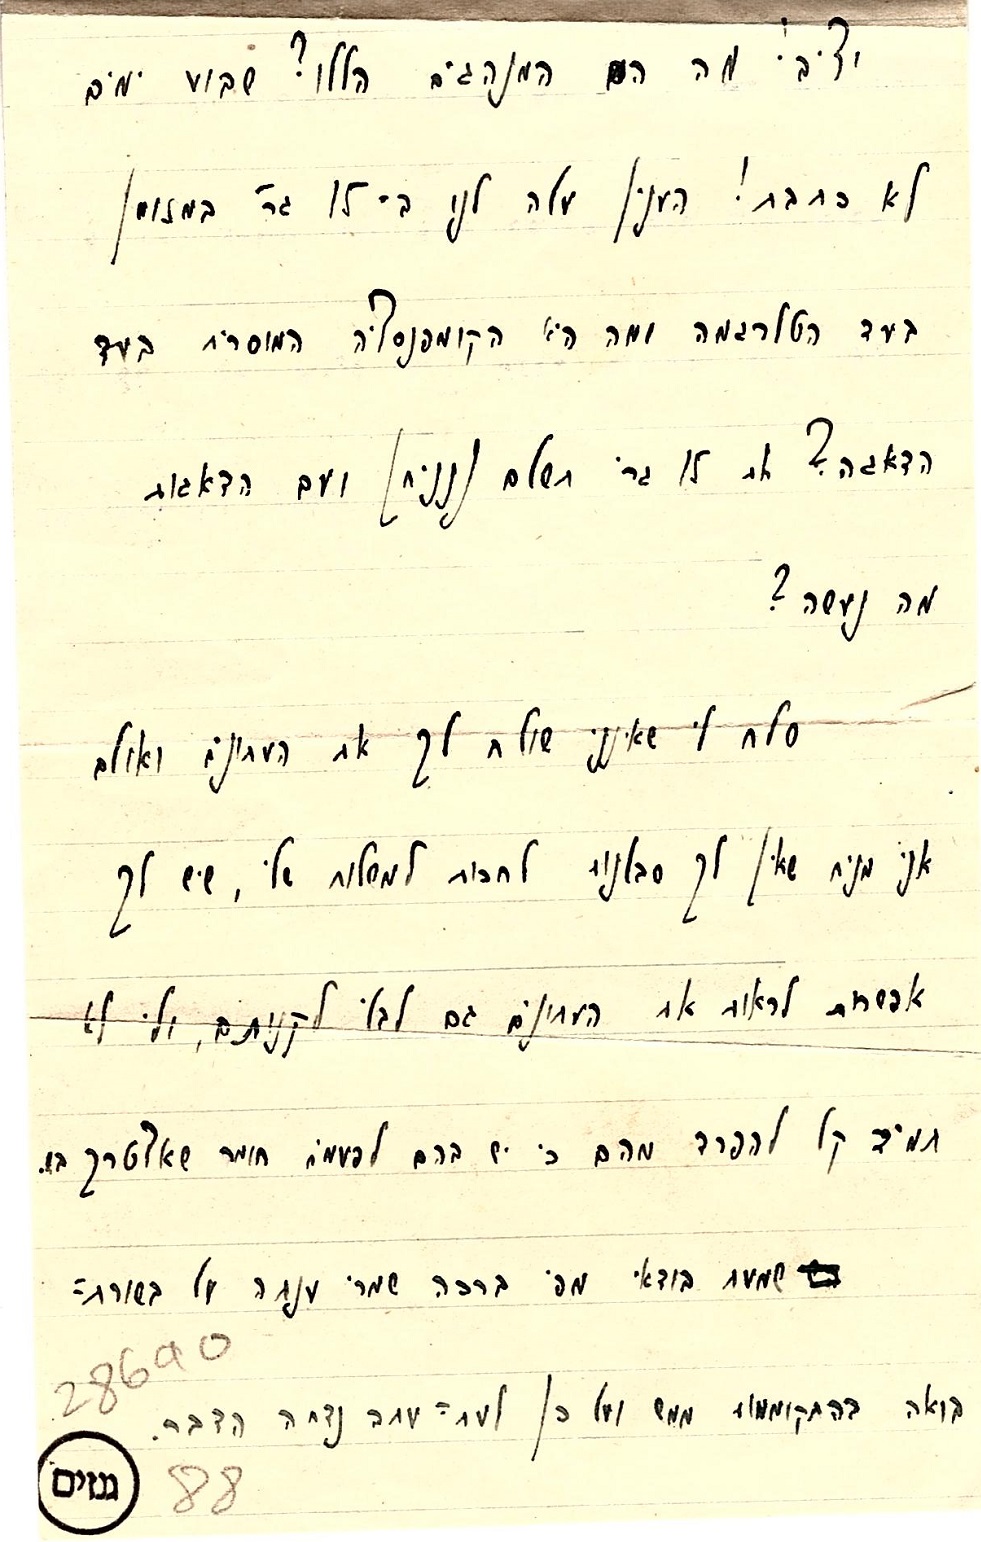 יציב! מה הם המנהגים הללו? שבוע ימים
לא כתבת! הענין עלה לנו ב־ לו גר׳ במזומן
בעד הטלגרמה ומה היא הקומפנסציה המוסרית בעד
הדאגה? את לו גר׳ תשלם (נניח) ועם הדאגות
מה נעשה?
סלח לי שאינני שולח לך את העתונים ואולם
אני מניח שאין לך סבלנות לחכות למשלוח שלי, שיש לך
אפשרות לראות את העתונים גם לבלי לקנותם, ולי לא
תמיד קל להפרד מהם כי יש בהם לפעמים חומר שאצטרך בו.
שמעת בודאי מפי ברכה שמרי ענתה על בשורת=
בואה בהתקוממות ממש ועל כן לעת=עתה נדחה הדבר.
28690
88
גנזים